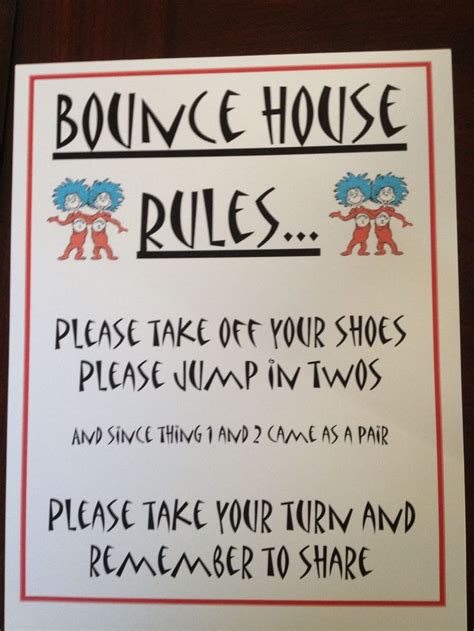 BOUNCE HOUSE
RULES...
PLEASE TAKE OFF YOUR SHOES
PLEASE JUMP IN TWOS
AND SINCE THING 1 AND 2 CAME AS A PAIR
PLEASE TAKE YOUR TURN AND
REMEMBER TO SHARE